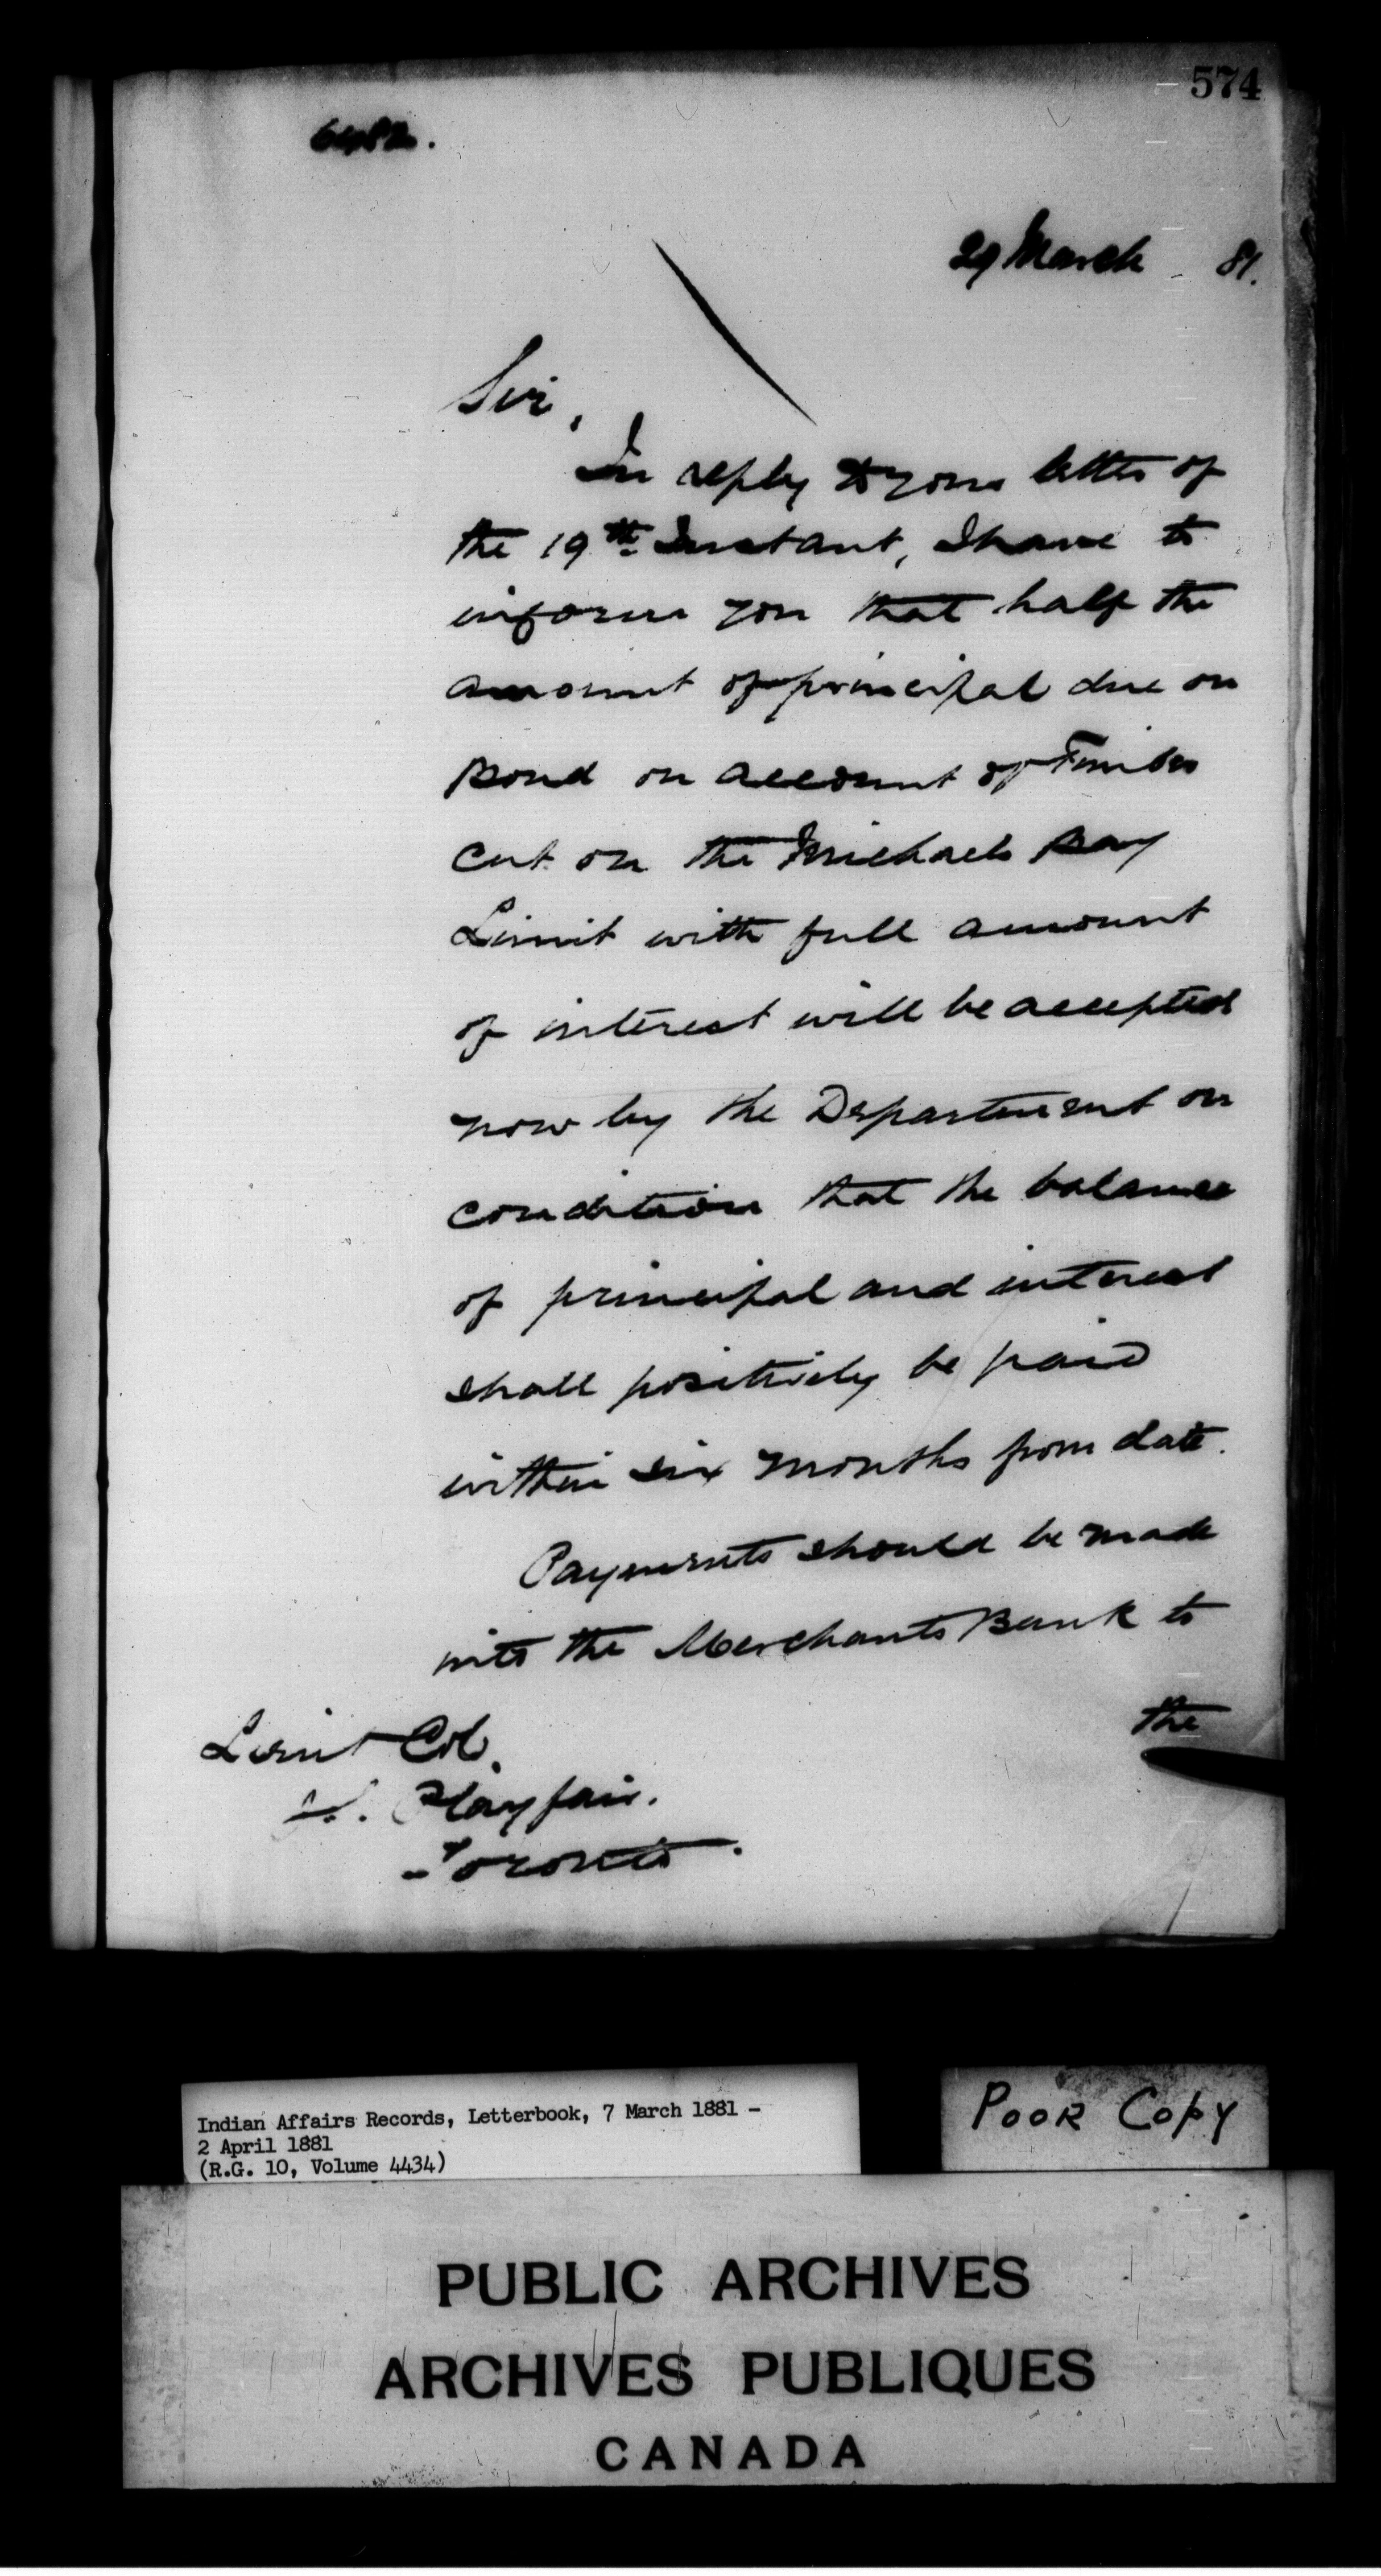 574
6482.
29 March 81.
Sir,
In reply to your letter of
the 19th Instant, I have to
inform you that half the
amount of principal due on
Bond on account of Timber
cut on the Michaels Bay
Limit with full amount
of interest will be accepted
now by the Department on
condition that the balance
of principal and interest
shall positively be paid
within six months from date.
Payments should be made
into the Merchants Bank to
the
Lieut Col.
Playfair.
Toronto.
Indian Affairs Records, Letterbook, 7 March 1881 -
2 April 1881
(R.G. 10, Volume 4434)
POOR COPY
PUBLIC ARCHIVES
ARCHIVES PUBLIQUES
CANADA